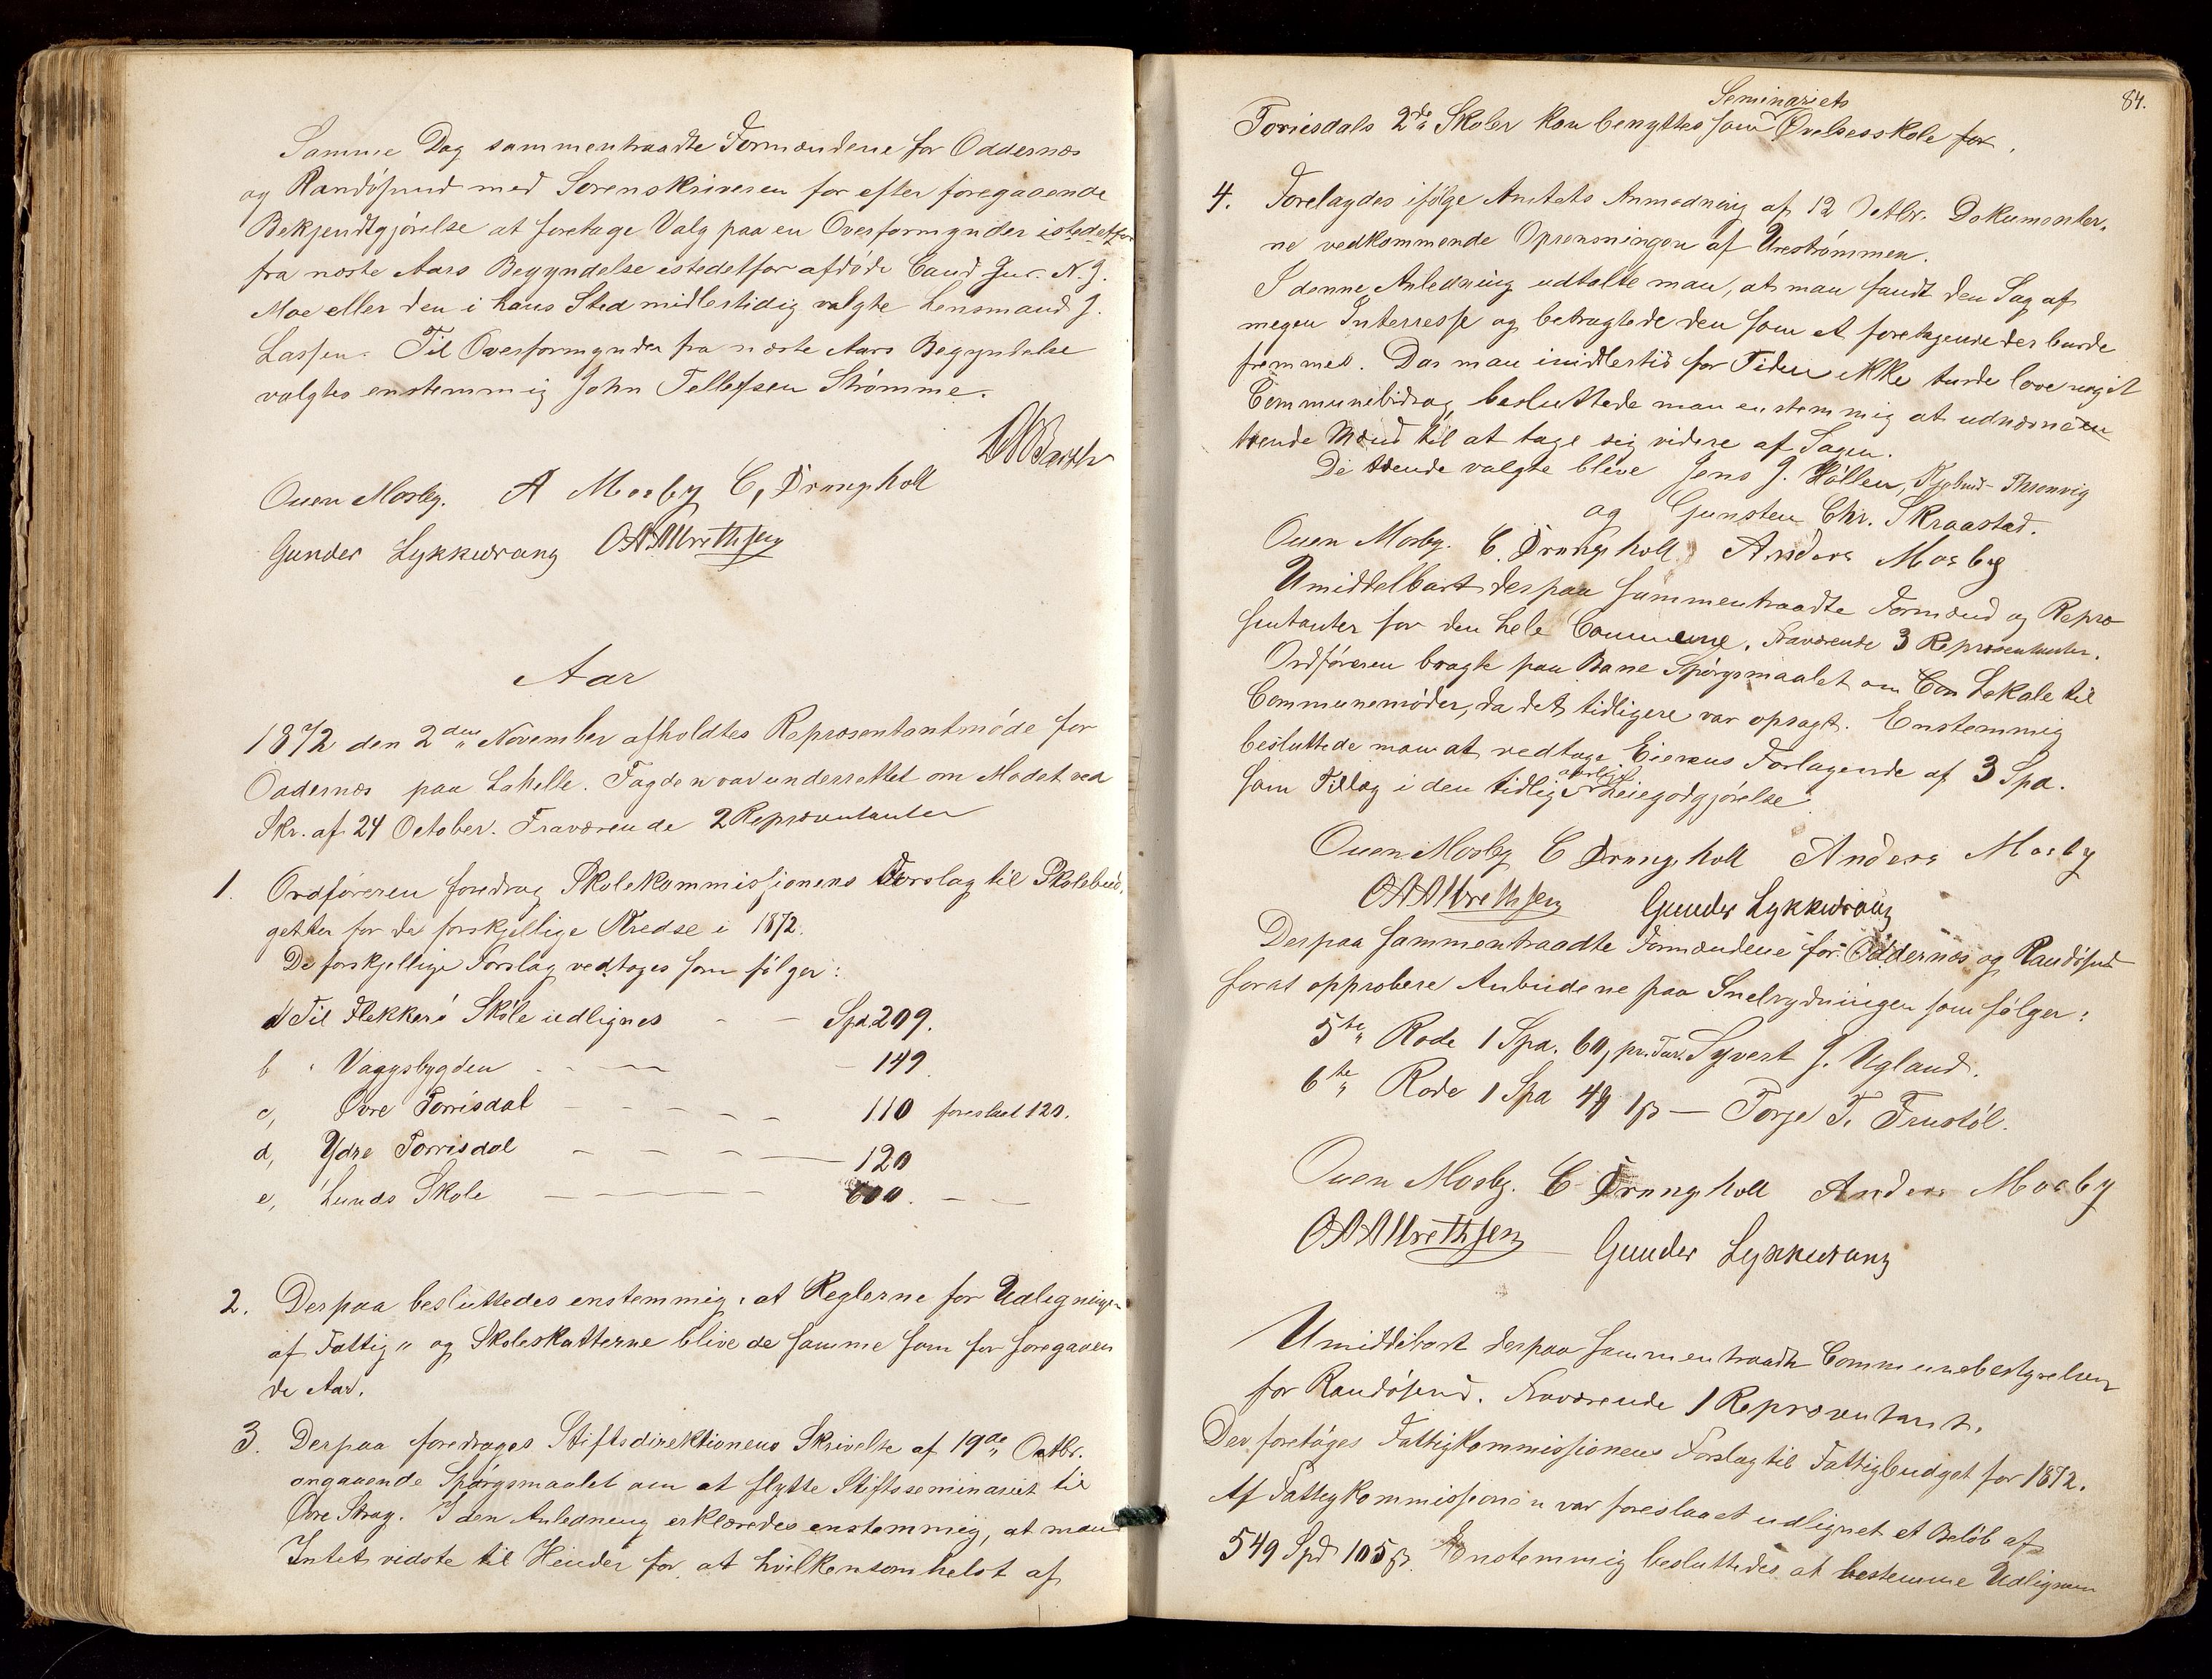 Samme Dag sammentraadte Formændene for Oddernæs
og Randøsund med Sorenskriveren for efter foregaaende
Bekjendtgjørelse at foretage Valg paa en Overformynder istedetfor
fra næste Aars Begyndelse istedetfor afdøde Cand Jur. N. J.
Moe eller den i hans Sted midlertidig valgte Lensmand J.
Lassen. Til Overformynder fra næste Aars Begyndelse
valgtes enstemmig John Tellefsen Strømme.
Ouen Mosby. A Mosby C, Drangsholt
Gunder Lykkedrang OAAlbrethsen
Aar
1872 den 2den November afholdtes Repræsentantmøde for
Oddernæs paa Lahelle. Fogden var underrettet om Mødet ved
Skr. af 24 October. Fraværende 2 Repræsentanter
1. Ordføreren foredrog Skolekommissionens Forslag til Skolebud-
getter for de forskjellige Kredse i 1872.
De forskjellige Forslag vedtoges som følger:
a Til Flekkerø Skole udlignes - - Spd. 209.
b " Vaagsbygden - - - - 149.
c, Øvre Torrisdal - - - - 110 foreslaaet 120.
d, Ydre Torrisdal - - - - 120
e, Lunds Skole - - - 600. - -
2. Derpaa besluttedes enstemmig, at Reglerne for Udligningen
af Fattig" og Skoleskatterne blive de samme som for foregaaen
de Aar.
3. Derpaa foredroges Stiftsdirektionens Skrivelse af 19de Octbr.
angaaende Spørgsmaalet om at flytte Stiftsseminariet til
Øvre Stray. I den Anledning erklæredes enstemmig, at man
Intet vidste til Hinder for, at hvilkensomhelst af
84.
Seminariets
Torrisdals 2de Skoler kan benyttes som Øvelsesskole for.
4. Forelagdes ifølge Amtets Anmodning af 12 Octbr. Dokumenter-
ne vedkommende Oprensningen af Urestrømmen.
I denne Anledning udtalte man, at man fandt den Sag af
megen Interresse og betragtede den som et foretagende der burde
fremmes. Da man imidlertid for Tiden ikke turde love noget
Communebidrag, besluttede man enstemmig at udnævne en
tvende Mænd til at tage sig videre af Sagen.
De tvende valgte bleve Jens J. Høllen, Thronvig
og Gunsten Chr. Skraastad.
Ouen Mosby. C. Drangsholt Anders Mosby
Umiddelbart derpaa sammentraadte Formænd og Repræ-
sentanter for den hele Commune. Fraværende 3 Repræsentanter.
Ordføreren bragte paa Bane Spørgsmaalet om Com Lokale til
Communemøder, da det tidligere var opsagt. Enstemmig
besluttede man at vedtage Eierens Forlagende af 3 Spd.
aarlig
som Tillæg i den tidlig Leiegodgjørelse.
Ouen Mosby C Drangsholt Anders Mosby
OAAlbrethsen Gunder Lykkedrang
Derpaa sammentraadte Formændene for Oddernæs og Randøsund
forat approbere Anbudene paa Snebrydningen som følger:
5te Rode 1 Spd. 60, pr. Tur. Syvert J. Ugland.
6te Rode 1 Spd 49 ß — Torje T. Frustøl.
Ouen Mosby. C Drangsholt Anders Mosby
OAAlbrethsen Gunder Lykkedrang
Umiddelbart derpaa sammentraadte Communebestyrelsen
for Randøsund. Fraværende 1 Repræsentant.
Der foretoges Fattigkommissionens Forslag til Fattigbudget for 1872.
Af Fattigkommissionen var foreslaaet udlignet et Beløb af
549 Spd 105 ß. Enstemmig besluttedes at bestemme Udlignin